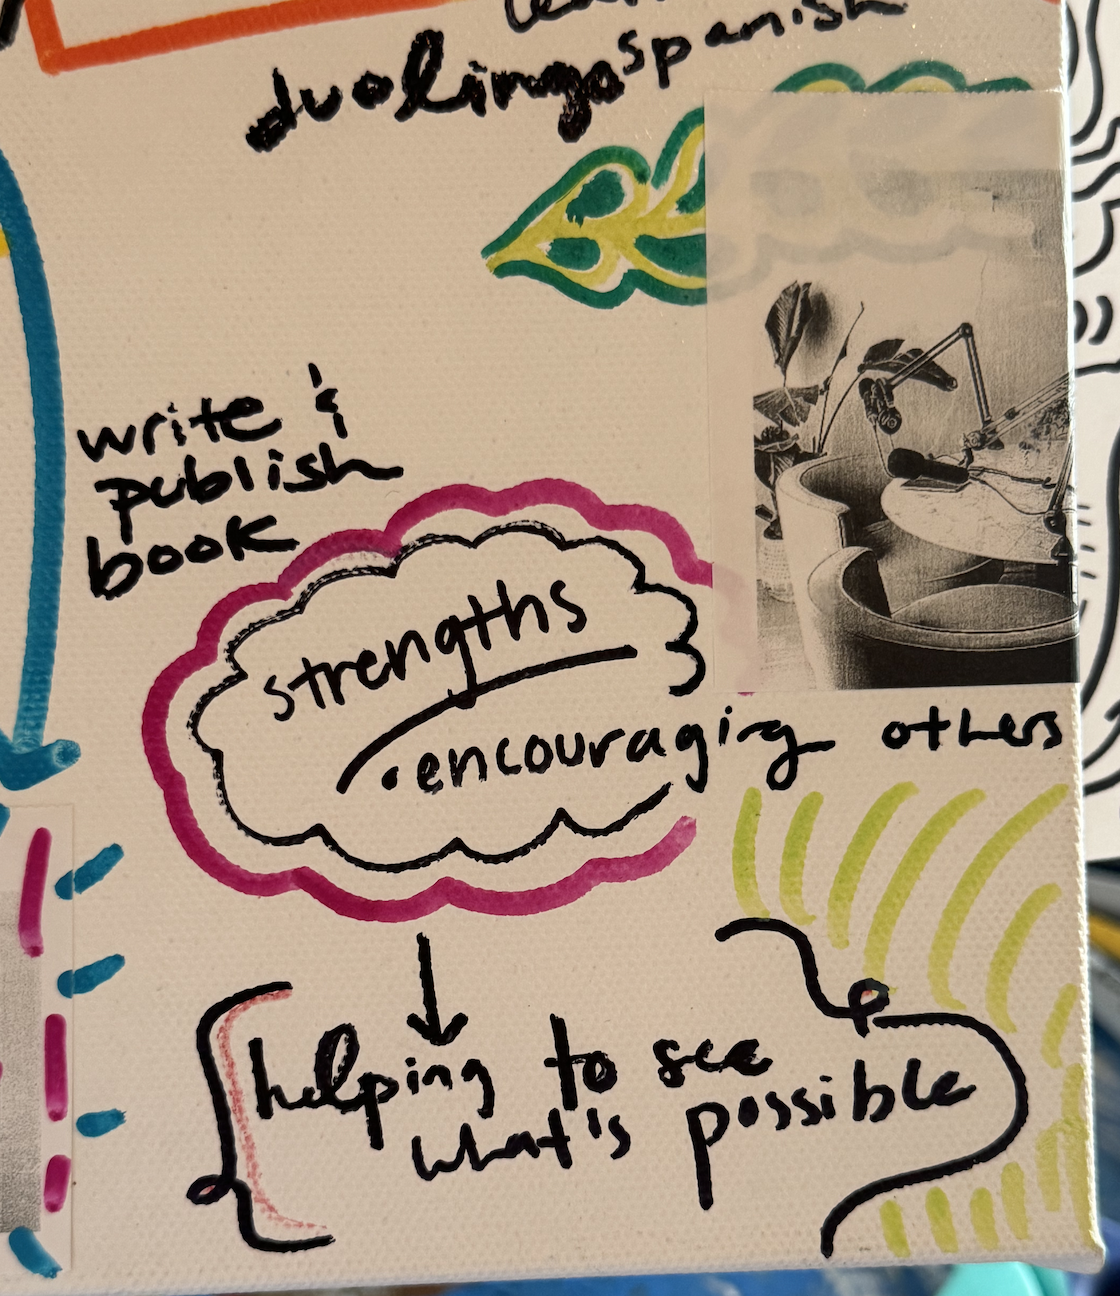 duolingo spanish
write &
publish
book
strengths
• encouraging others
helping to see
what's possible